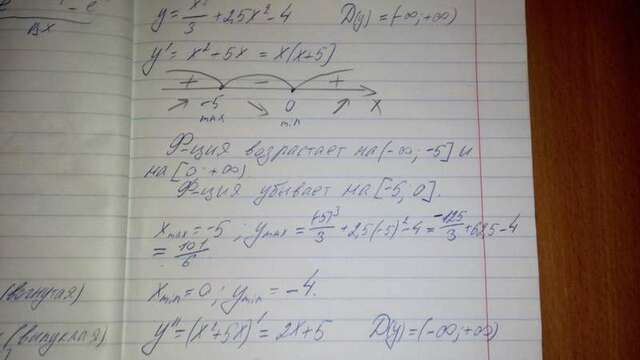 вх
y = x³/3 + 2,5x² - 4 D(y) = (-∞; +∞)
y' = x² + 5x = x(x+5)
+ - +
-5 0 x
max min
Ф-ция возрастает на (-∞; -5] и
на [0; +∞)
Ф-ция убывает на [-5, 0].
x max = -5 ; y max = (-5)³/3 + 2,5(-5)² - 4 = -125/3 + 62,5 - 4
= 101/6
(вогнутая)
x min = 0 ; y min = -4.
(выпуклая)
y'' = (x² + 5x)' = 2x + 5 D(y) = (-∞; +∞)